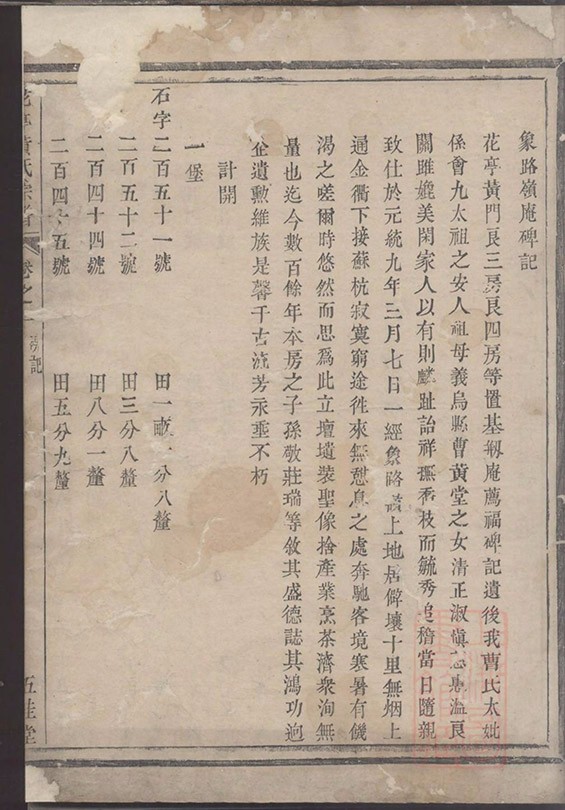 象路嶺庵碑記
花亭黃門良三房良四房等置基剏庵薦福碑記遺後我曹氏太妣
係會九太祖之安人祖母義烏縣曹黃堂之女清正淑慎志惠溫良
關雎媲美閑家人以有則麟趾詒祥撫香枝而毓秀追稽當日隨親
致仕於元統九年三月七日一經象路嶺上地居僻壤十里無烟上
通金衢下接蘇杭寂寞窮途徃來無憇息之處奔馳客境寒暑有饑
渴之嗟爾時悠然而思爲此立壇塑裝聖像捨產業烹茶濟衆洵無
量也迄今數百餘年本房之子孫敬莊瑞等敘其盛德誌其鴻功迥
企遺勲維族是馨千古流芳永垂不朽
計開
一堡
石字二百五十一號 田一畝一分八釐
二百五十二號 田三分八釐
二百四十四號 田八分一釐
二百四十五號 田五分九釐
花亭黃氏宗譜 卷之一 碑記 五桂堂